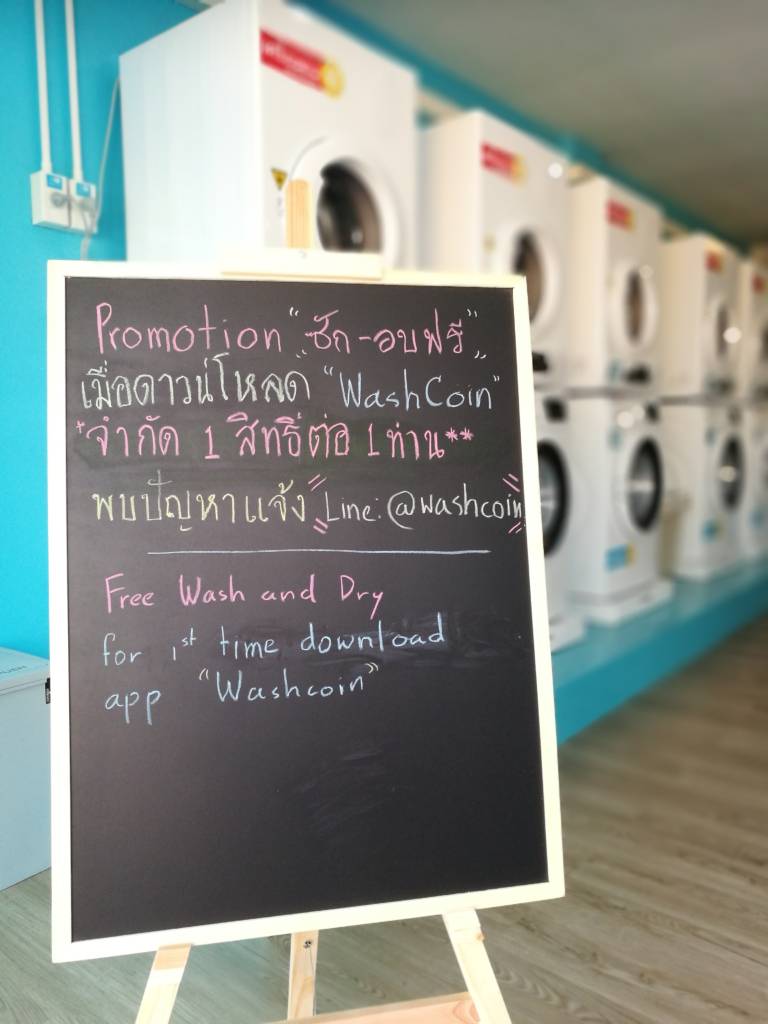 Promotion "ซัก-อบฟรี"
เมื่อดาวน์โหลด "WashCoin"
*จำกัด 1 สิทธิ์ต่อ 1 ท่าน**
พบปัญหาแจ้ง "Line: @washcoin"
Free Wash and Dry
for 1st time download
app "Washcoin"